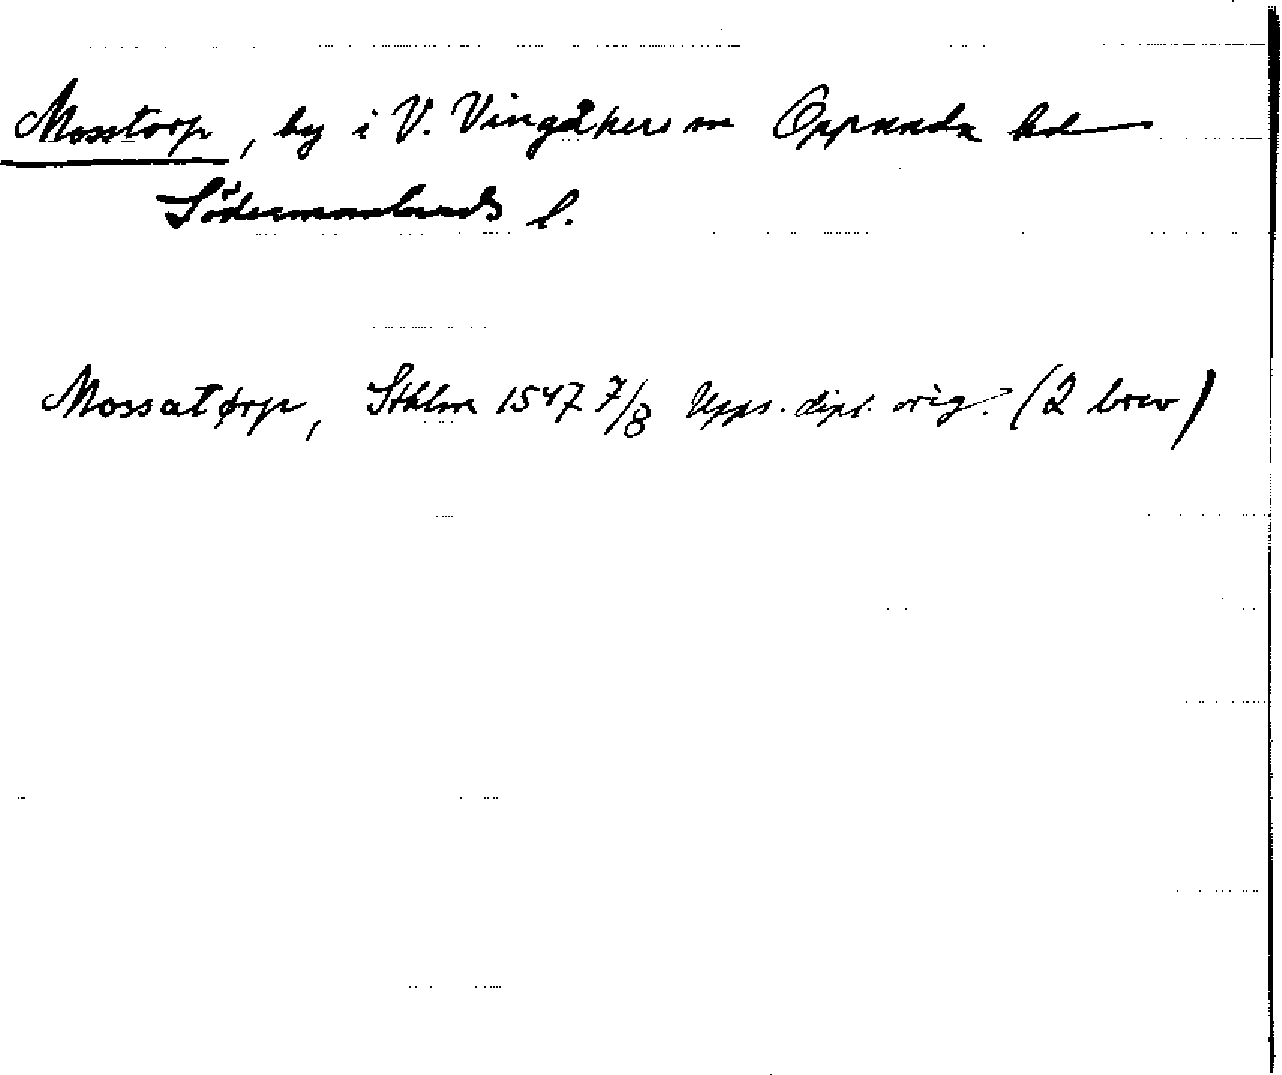 Mosstorp, by i V. Vingåkers sn Oppunda hd
Södermanlands l.
Mossatørp, Sthlm 1547 7/8 Upps. dipl. orig. (2 brev)